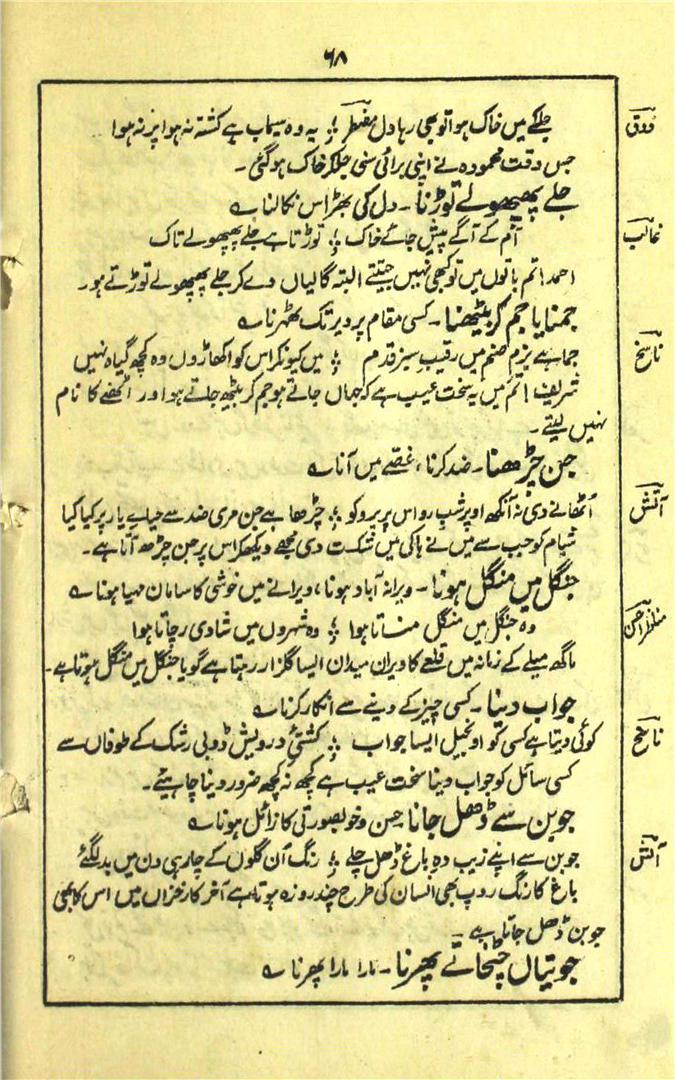 ٦٨
ذوق
جلکے میں خاک ہوا تو بھی رہا دل مضطر ؛ یہ وہ سیماب ہے کشتہ نہ ہوا پر نہ ہوا
جس وقت محمودہ نے اپنی برائی سنی جلکر خاک ہو گئی۔
جلے پھپھولے توڑنا۔ دل کی بھڑاس نکالنا ؎
غالب
آم کے آگے پیش جائے خاک ؛ توڑتا ہے جلے پھپھولے تاک
احمد! تم باتوں میں تو کبھی نہیں جیتتے البتہ گالیاں دے کر جلے پھپھولے توڑتے ہو۔
جمنا یا جم کر بیٹھنا۔ کسی مقام پر دیر تک ٹھہرنا ؎
ناسخ
جما ہے بزم صنم میں رقیب سبز قدم ؛ میں کیونکر اس کو اکھاڑوں وہ کچھ گیاہ نہیں
شریف! تم میں یہ سخت عیب ہے کہ جہاں جاتے ہو جم کر بیٹھ جاتے ہو اور اٹھنے کا نام
نہیں لیتے۔
جن چڑھنا۔ ضد کرنا، غصے میں آنا ؎
آتش
اُٹھانے دی نہ آنکھ اوپر شب رو اس پریرو کو ؛ چڑھا ہے جن مری ضد سے حیا ے یار پر کیا کیا
شیام کو جب سے میں نے ہاکی میں شکست دی مجھے دیکھکر اس پر جن چڑھ آتا ہے۔
جنگل میں منگل ہونا۔ ویرانہ آباد ہونا، ویرانے میں خوشی کا سامان مہیا ہونا ؎
مناظر احسن
وہ جنگل میں منگل مناتا ہوا ؛ وہ شہروں میں شادی رچاتا ہوا
ماگھ میلے کے زمانہ میں قلعے کا ویران میدان ایسا گلزار رہتا ہے گویا جنگل میں منگل ہوتا ہے۔
جواب دینا۔ کسی چیز کے دینے سے انکار کرنا ؎
ناسخ
کوئی دیتا ہے کسی کو او بخیل ایسا جواب ؛ کشتیٔ درویش ڈوبی رشک کے طوفاں سے
کسی سائل کو جواب دینا سخت عیب ہے کچھ نہ کچھ ضرور دینا چاہئے۔
جوبن سے ڈھل جانا۔ حسن و خوبصورتی کا زائل ہونا ؎
آتش
جوبن سے اپنے زیب دہِ باغ ڈھل چلے ؛ رنگ اُن گلوں کے چار ہی دن میں بدل گئے
باغ کا رنگ روپ بھی انسان کی طرح چند روزہ ہوتا ہے آخر کار خزاں میں اس کا بھی
جوبن ڈھل جاتا ہے۔
جوتیاں چٹخاتے پھرنا۔ مارا مارا پھرنا ؎